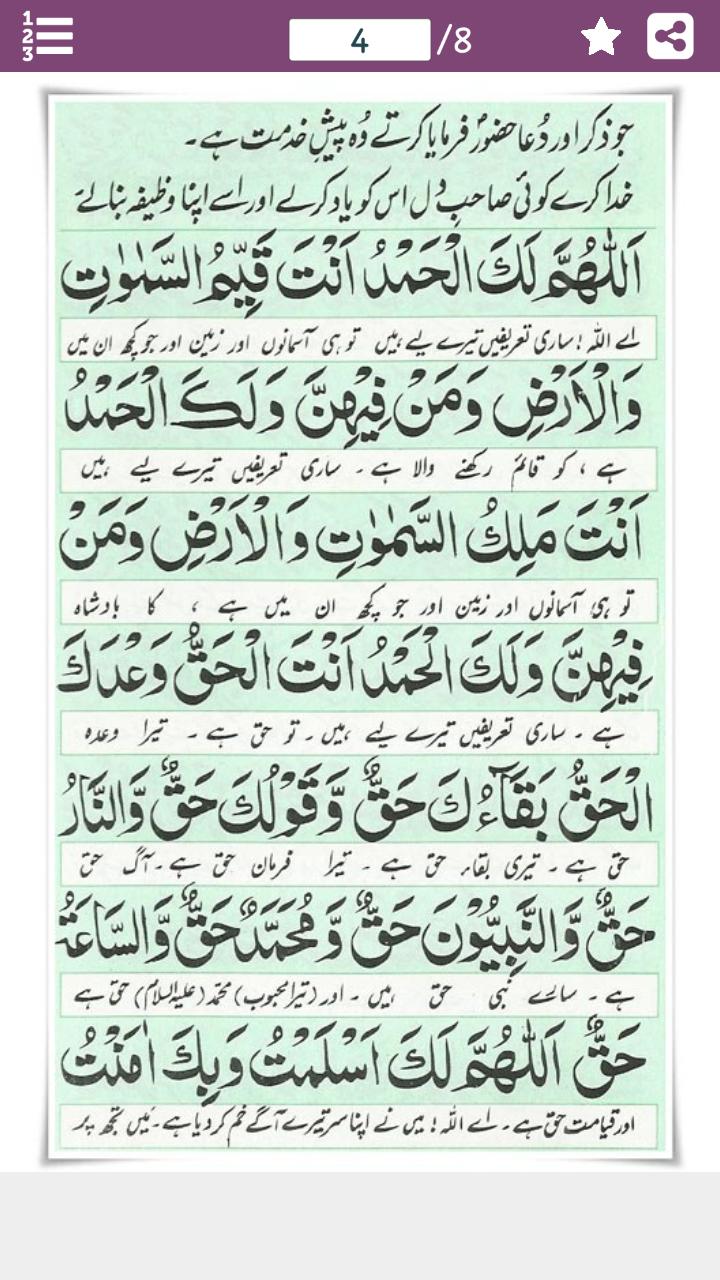 4 /8
جو ذکر اور دُعا حضورؐ فرمایا کرتے وُہ پیشِ خدمت ہے۔
خدا کرے کوئی صاحبِ دل اس کو یاد کرلے اور اسے اپنا وظیفہ بنالے
اَللّٰهُمَّ لَكَ الْحَمْدُ اَنْتَ قَيِّمُ السَّمٰوٰتِ
اے اللہ! ساری تعریفیں تیرے لیے ہیں تو ہی آسمانوں اور زمین اور جو کچھ ان میں
وَالْاَرْضِ وَمَنْ فِيْهِنَّ وَلَكَ الْحَمْدُ
ہے، کو قائم رکھنے والا ہے۔ ساری تعریفیں تیرے لیے ہیں
اَنْتَ مَلِكُ السَّمٰوٰتِ وَالْاَرْضِ وَمَنْ
تو ہی آسمانوں اور زمین اور جو کچھ ان میں ہے، کا بادشاہ
فِيْهِنَّ وَلَكَ الْحَمْدُ اَنْتَ الْحَقُّ وَعْدَكَ
ہے۔ ساری تعریفیں تیرے لیے ہیں۔ تو حق ہے۔ تیرا وعدہ
الْحَقُّ بَقَآءُكَ حَقٌّ وَّقَوْلُكَ حَقٌّ وَّالنَّارُ
حق ہے۔ تیری بقاء حق ہے۔ تیرا فرمان حق ہے۔ آگ حق
حَقٌّ وَّالنَّبِيُّوْنَ حَقٌّ وَّمُحَمَّدٌ حَقٌّ وَّالسَّاعَةُ
ہے۔ سارے نبی حق ہیں۔ اور (تیرا محبوب) محمّد (علیہ السلام) حق ہے
حَقٌّ اَللّٰهُمَّ لَكَ اَسْلَمْتُ وَبِكَ اٰمَنْتُ
اور قیامت حق ہے۔ اے اللہ! میں نے اپنا سر تیرے آگے خم کر دیا ہے۔ میں تجھ پر